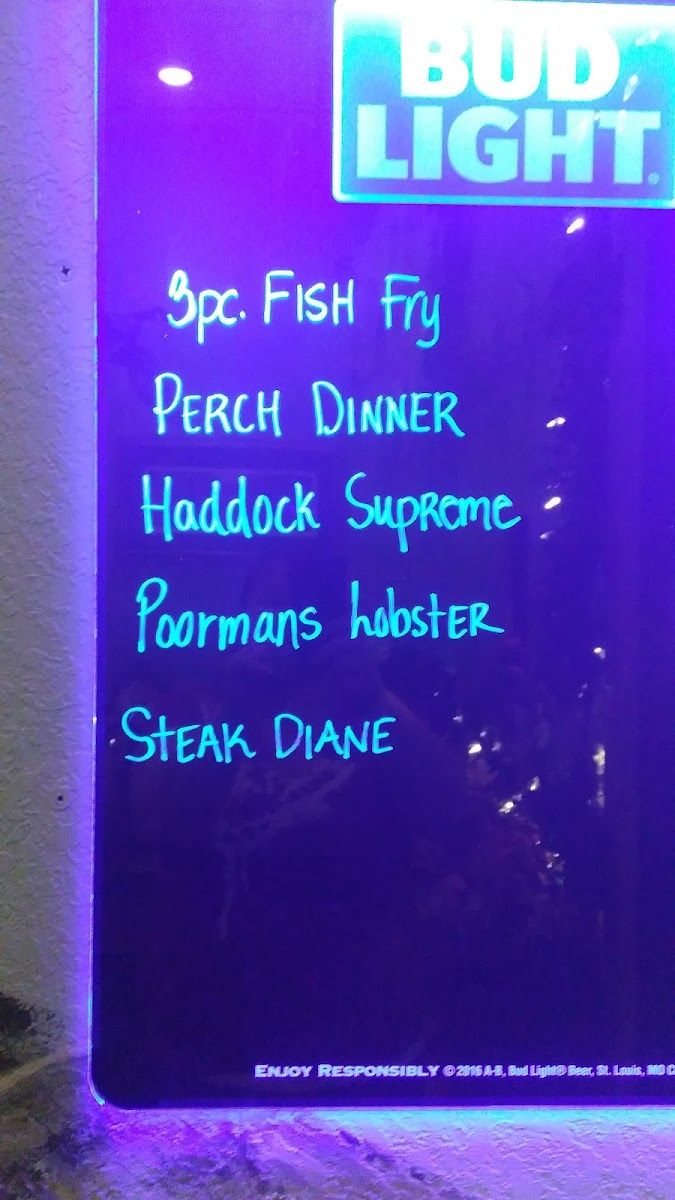 BUD
LIGHT®
3pc. FISH Fry
PERCH DINNER
Haddock Supreme
Poormans Lobster
STEAK DIANE
ENJOY RESPONSIBLY © 2016 A-B, Bud Light® Beer, St. Louis, MO